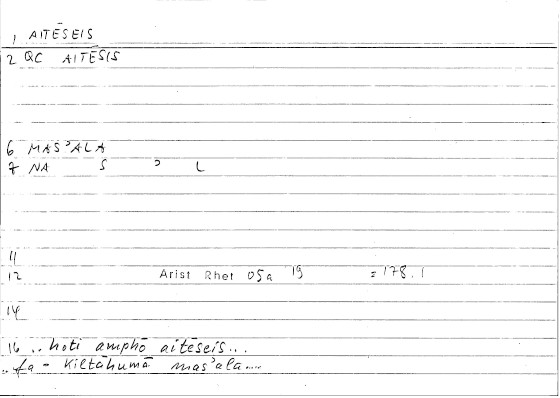 1 AITĒSEIS
2 QC AITĒSIS
6 MAS'ALA
7 NA S ' L
11
12 Arist Rhet 05a 19 = 178.1
14
16 ..hoti amphō aitēseis...
..fa - kiltāhumā mas'ala....